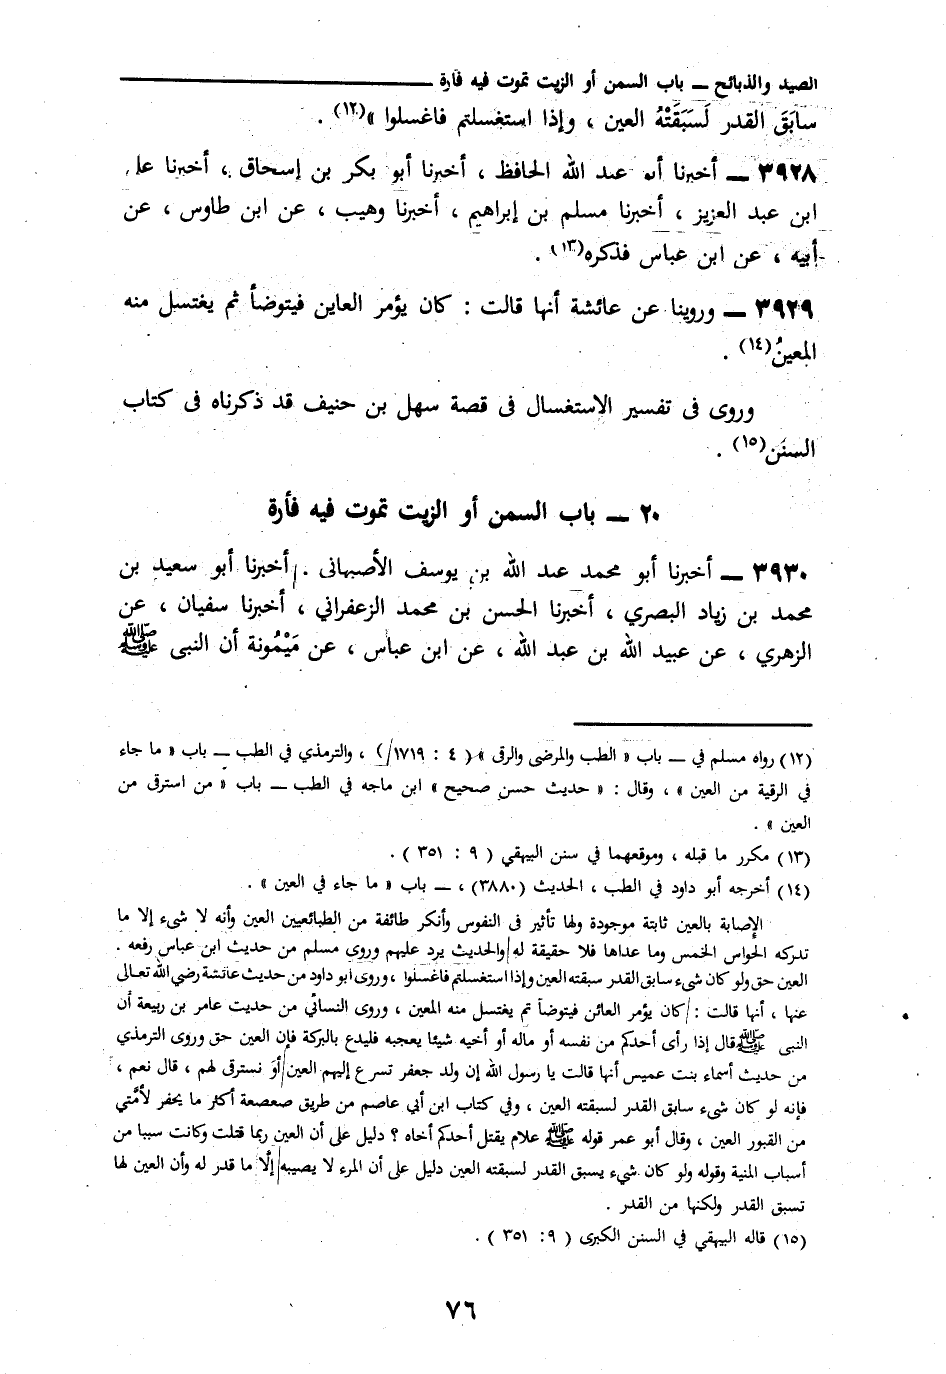 الصيد والذبائح ــ باب السمن أو الزيت تموت فيه فأرة
سابَقَ القدر لَسَبَقَتْهُ العين ، وإذا استغسلتم فاغسلوا »(١٢) .
٣٩٢٨ ــ أخبرنا أبو عبد الله الحافظ ، أخبرنا أبو بكر بن إسحاق ، أخبرنا علي
ابن عبد العزيز ، أخبرنا مسلم بن إبراهيم ، أخبرنا وهيب ، عن ابن طاوس ، عن
أبيه ، عن ابن عباس فذكره(١٣) .
٣٩٢٩ ــ وروينا عن عائشة أنها قالت : كان يؤمر العاين فيتوضأ ثم يغتسل منه
المعينُ(١٤) .
وروى فى تفسير الاستغسال فى قصة سهل بن حنيف قد ذكرناه فى كتاب
السنن(١٥) .
٢٠ ــ باب السمن أو الزيت تموت فيه فأرة
٣٩٣٠ ــ أخبرنا أبو محمد عبد الله بن يوسف الأصبهانى . أخبرنا أبو سعيد بن
محمد بن زياد البصري ، أخبرنا الحسن بن محمد الزعفراني ، أخبرنا سفيان ، عن
الزهري ، عن عبيد الله بن عبد الله ، عن ابن عباس ، عن مَيْمُونة أن النبى ﷺ
(١٢) رواه مسلم في ــ باب « الطب والمرضى والرقى » ( ٤ : ١٧١٩/) ، والترمذي في الطب ــ باب « ما جاء
في الرقية من العين » ، وقال : « حديث حسن صحيح » ابن ماجه في الطب ــ باب « من استرقى من
العين » .
(١٣) مكرر ما قبله ، وموقعهما في سنن البيهقي ( ٩ : ٣٥١ ) .
(١٤) أخرجه أبو داود في الطب ، الحديث (٣٨٨٠) ، ــ باب « ما جاء في العين » .
الإصابة بالعين ثابتة موجودة ولها تأثير فى النفوس وأنكر طائفة من الطبائعيين العين وأنه لا شىء إلا ما
تدركه الحواس الخمس وما عداها فلا حقيقة له/والحديث يرد عليهم وروى مسلم من حديث ابن عباس رفعه .
العين حق ولو كان شىء سابق القدر سبقته العين وإذا استغسلتم فاغسلوا ، وروى أبو داود من حديث عائشة رضي الله تعالى
عنها ، أنها قالت :/كان يؤمر العائن فيتوضأ ثم يغتسل منه المعين ، وروى النسائي من حديث عامر بن ربيعة أن
النبى ﷺ قال إذا رأى أحدكم من نفسه أو ماله أو أخيه شيئا يعجبه فليدع بالبركة فإن العين حق وروى الترمذي
من حديث أسماء بنت عميس أنها قالت يا رسول الله إن ولد جعفر تسرع إليهم العين/أو نسترقى لهم ، قال نعم ،
فإنه لو كان شىء سابق القدر لسبقته العين ، وفي كتاب ابن أبي عاصم من طريق صعصعة أكثر ما يحفر لأمَّتي
من القبور العين ، وقال أبو عمر قوله ﷺ علام يقتل أحدكم أخاه ؟ دليل على أن العين ربما قتلت وكانت سببا من
أسباب المنية وقوله ولو كان شيء يسبق القدر لسبقته العين دليل على أن المرء لا يصيبه/إلَّا ما قدر له وأن العين لها
تسبق القدر ولكنها من القدر .
(١٥) قاله البيهقي في السنن الكبرى ( ٩ : ٣٥١ ) .
٧٦